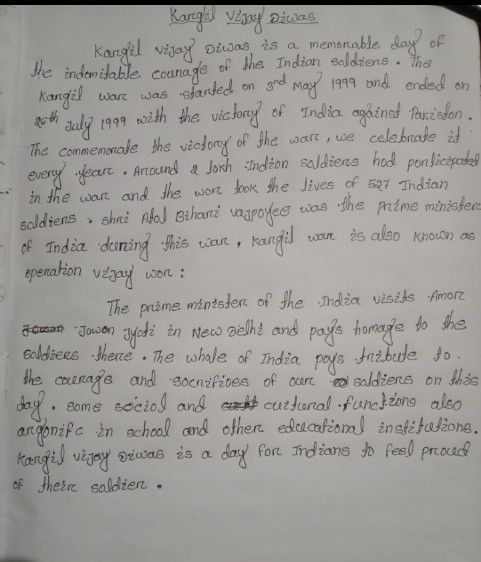 Kargil Vijay Diwas
Kargil Vijay Diwas is a memorable day of
the indomitable courage of the Indian soldiers. The
Kargil war was started on 3rd May 1999 and ended on
26th July 1999 with the victory of India against Pakistan.
The commemorate the victory of the war, we celebrate it
every year. Around 2 lakh Indian soldiers had participated
in the war and the war took the lives of 527 Indian
soldiers. Shri Atal Bihari Vajpayee was the prime minister
of India during this war, Kargil war is also known as
operation vijay war:
The prime minister of the India visits Amar
Jawan Jyoti in New Delhi and pays homage to the
soldiers there. The whole of India pays tribute to.
the courage and sacrifices of our soldiers on this
day. some social and cultural functions also
argonife in school and other educational institutions.
Kargil vijay Diwas is a day for Indians to feel proud
of their soldier.